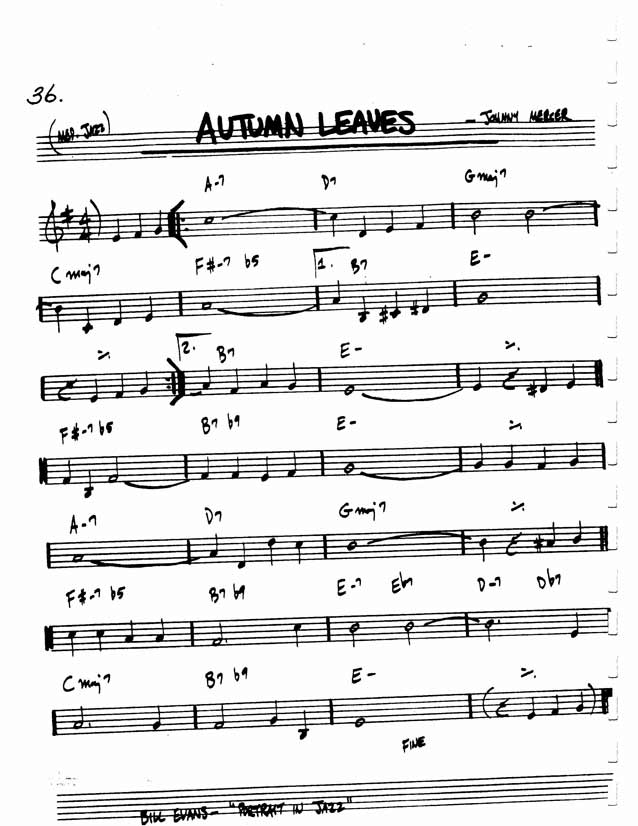 36.
(MED. JAZZ) AUTUMN LEAVES – JOHNNY MERCER
A-7 D7 Gmaj7
4/4
Cmaj7 F#-7 b5 1. B7 E-
2. B7 E-
F#-7 b5 B7 b9 E-
A-7 D7 Gmaj7
F#-7 b5 B7 b9 E-7 Eb7 D-7 Db7
Cmaj7 B7 b9 E-
FINE
BILL EVANS – "PORTRAIT IN JAZZ"